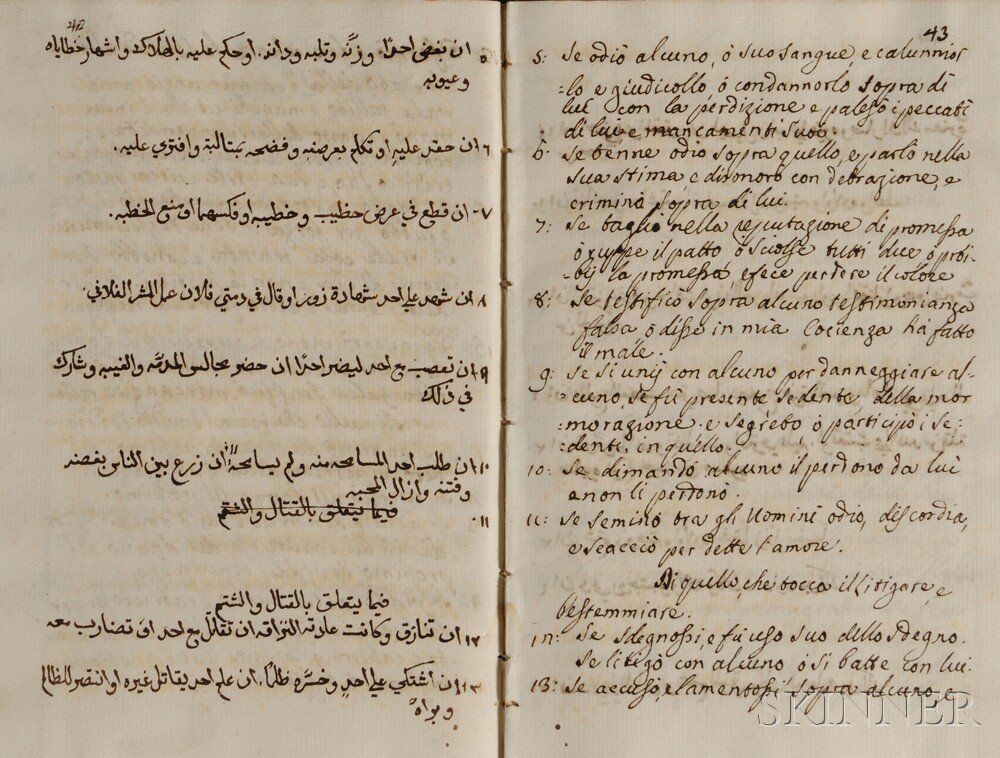 ان بغض احدًا. وزنّه وتلبه ودانه. او حكم عليه بالهلاك واشهار خطاياه
وعيوبه
٦ ان حقر عليه او تكلم بعرضه وفضحه بمثالبة وافتوي عليه.
٧ ان قطع في عرض خطيب وخطيبه او فكسهما او منع الخطبه.
٨ ان شهد علي احد شهادة زور او قال في دمتي فلان عمل الشر الفلاني.
٩ ان تعصب مع احد ليضر احدًا ان حضر مجالس المدمّه والغيبه وشارك
في ذلك
١٠ ان طلب احد المسامحه منه ولم يسامحه ان زرع بين الناس بغضه
وفتنه وازال المحبه
١١. فيما يتعلق بالقتال والشتم
فيما يتعلق بالقتال والشتم
١٢ ان تنازق وكانت عادته النزاقه ان تقاتل مع احد او تضارب معه
١٣ ان اشتكي علي احدٍ وخسّره ظلمًا. ان علم احد يقاتل غيره او انتصر للظالم
43
5: Se odiò alcuno, ó suo sangue, e calunnios
-lo e giudicollo, ó condannorlo sopra di
lui con la perdizione e palesò i peccati
di lui e mancamenti suoi.
6: Se tenne odio sopra quello, e parlò nella
sua stima e disonorò con detrazione, e
criminò sopra di lui.
7: Se tagliò nella reputazione di promessa
ó ruppe il patto ó sciolse tutti due ó proi-
-bij la promessa e fece perdere il colore
8: Se testificò sopra alcuno testimonianza
falsa ó disse in mia Cocienza ha fatto
il male.
9: Se si unij con alcuno per danneggiare al-
-cuno, se fù presente sedente, della mor
morazione e segreto, ó participò i se-
-denti, in quello.
10: Se dimandò alcuno il perdono da lui
e non li perdonò.
11: Se seminò tra gli Uomini odio, discordia,
e scacciò per dette l'amore.
Di quello, che tocca il litigare e
bestemmiare.
12: Se sdegnossi, e fù uso suo dello sdegno.
Se litigò con alcuno ó si batte con lui.
13: Se accusò, e lamentossi sopra alcuno, e
SKINNER